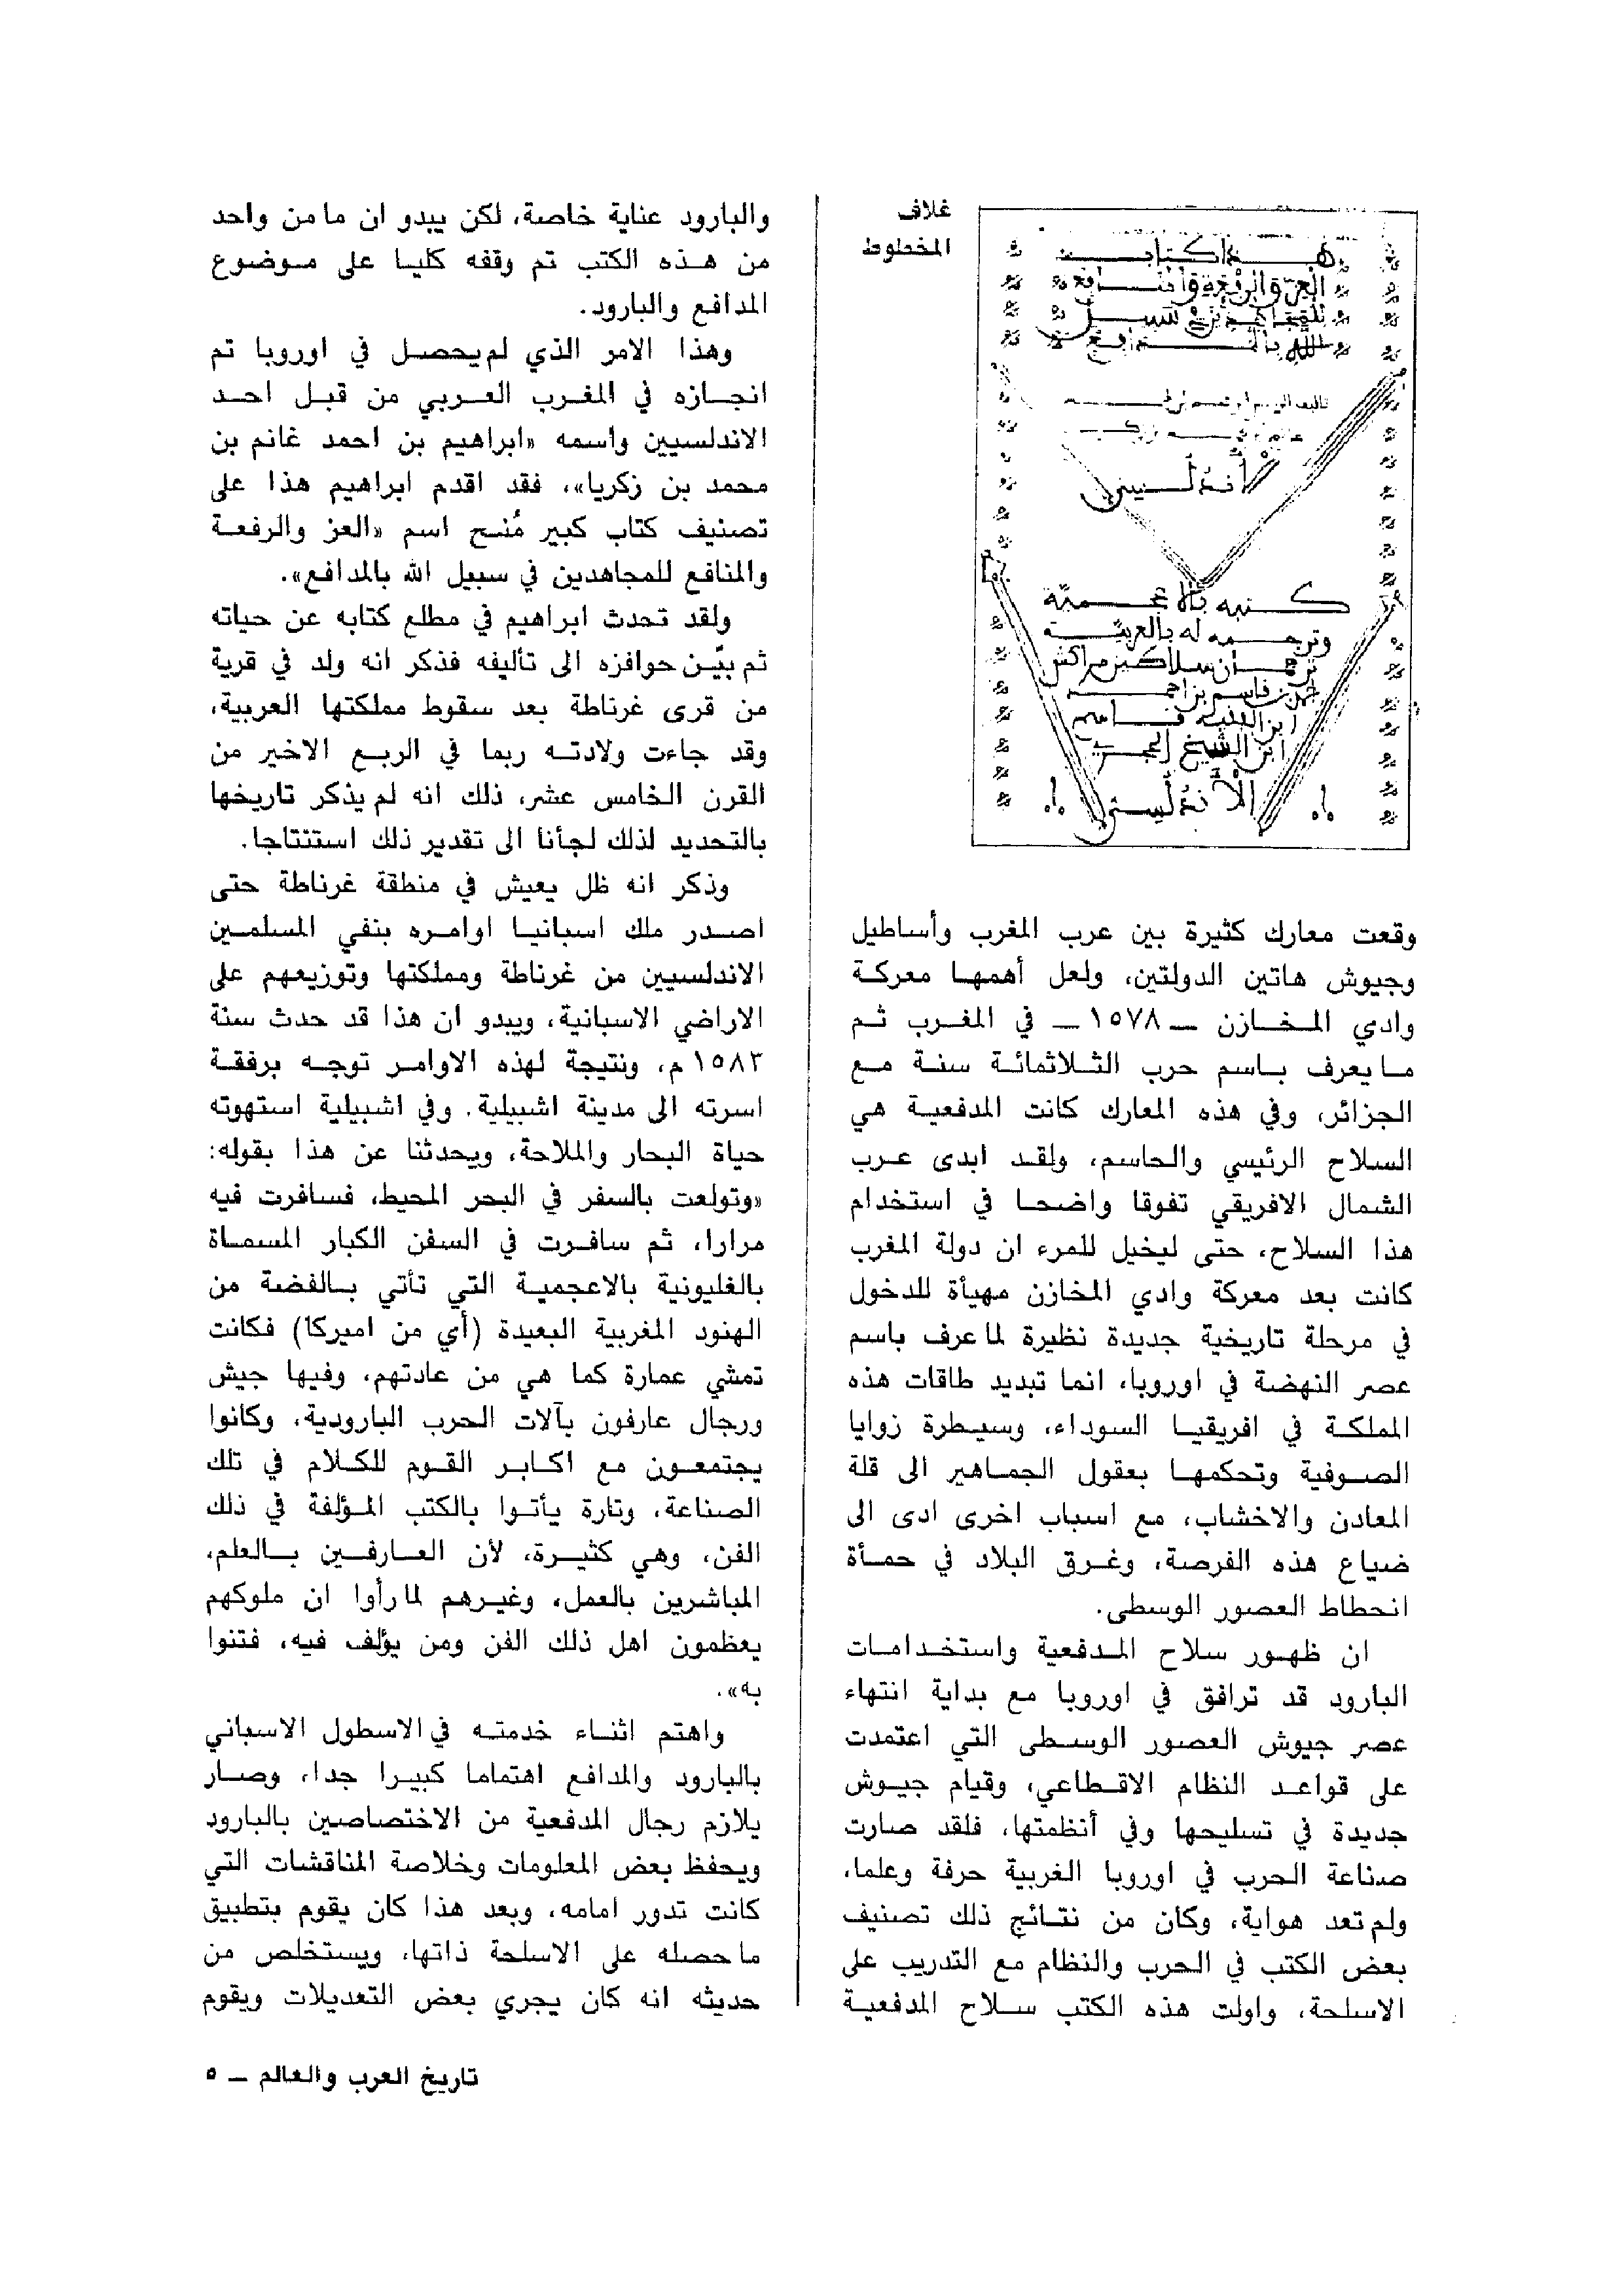 غلاف
المخطوط
هذا كتاب
العز والرفعة والمنافع
للمجاهدين في سبيل
الله بالمدافع
كتبه بالاعجمية
وترجمه له بالعربية
ترجمان سلاطين مراكش
احمد بن قاسم بن احمد
ابن الفقيه قاسم
ابن الشيخ الحجري
الأندلسي
وقعت معارك كثيرة بين عرب المغرب وأساطيل
وجيوش هاتين الدولتين، ولعل أهمها معركة
وادي المخازن ــ ١٥٧٨ ــ في المغرب ثم
ما يعرف باسم حرب الثلاثمائة سنة مع
الجزائر، وفي هذه المعارك كانت المدفعية هي
السلاح الرئيسي والحاسم، ولقد ابدى عرب
الشمال الافريقي تفوقا واضحا في استخدام
هذا السلاح، حتى ليخيل للمرء ان دولة المغرب
كانت بعد معركة وادي المخازن مهيأة للدخول
في مرحلة تاريخية جديدة نظيرة لما عرف باسم
عصر النهضة في اوروبا، انما تبديد طاقات هذه
المملكة في افريقيا السوداء، وسيطرة زوايا
الصوفية وتحكمها بعقول الجماهير الى قلة
المعادن والاخشاب، مع اسباب اخرى ادى الى
ضياع هذه الفرصة، وغرق البلاد في حمأة
انحطاط العصور الوسطى.
ان ظهور سلاح المدفعية واستخدامات
البارود قد ترافق في اوروبا مع بداية انتهاء
عصر جيوش العصور الوسطى التي اعتمدت
على قواعد النظام الاقطاعي، وقيام جيوش
جديدة في تسليحها وفي أنظمتها، فلقد صارت
صناعة الحرب في اوروبا الغربية حرفة وعلما،
ولم تعد هواية، وكان من نتائج ذلك تصنيف
بعض الكتب في الحرب والنظام مع التدريب على
الاسلحة، واولت هذه الكتب سلاح المدفعية
والبارود عناية خاصة، لكن يبدو ان ما من واحد
من هذه الكتب تم وقفه كليا على موضوع
المدافع والبارود.
وهذا الامر الذي لم يحصل في اوروبا تم
انجازه في المغرب العربي من قبل احد
الاندلسيين واسمه «ابراهيم بن احمد غانم بن
محمد بن زكريا»، فقد اقدم ابراهيم هذا على
تصنيف كتاب كبير مُنح اسم «العز والرفعة
والمنافع للمجاهدين في سبيل الله بالمدافع».
ولقد تحدث ابراهيم في مطلع كتابه عن حياته
ثم بيّن حوافزه الى تأليفه فذكر انه ولد في قرية
من قرى غرناطة بعد سقوط مملكتها العربية،
وقد جاءت ولادته ربما في الربع الاخير من
القرن الخامس عشر، ذلك انه لم يذكر تاريخها
بالتحديد لذلك لجأنا الى تقدير ذلك استنتاجا.
وذكر انه ظل يعيش في منطقة غرناطة حتى
اصدر ملك اسبانيا اوامره بنفي المسلمين
الاندلسيين من غرناطة ومملكتها وتوزيعهم على
الاراضي الاسبانية، ويبدو ان هذا قد حدث سنة
١٥٨٣ م، ونتيجة لهذه الاوامر توجه برفقة
اسرته الى مدينة اشبيلية. وفي اشبيلية استهوته
حياة البحار والملاحة، ويحدثنا عن هذا بقوله:
«وتولعت بالسفر في البحر المحيط، فسافرت فيه
مرارا، ثم سافرت في السفن الكبار المسماة
بالغليونية بالاعجمية التي تأتي بالفضة من
الهنود المغربية البعيدة (أي من اميركا) فكانت
تمشي عمارة كما هي من عادتهم، وفيها جيش
ورجال عارفون بآلات الحرب البارودية، وكانوا
يجتمعون مع اكابر القوم للكلام في تلك
الصناعة، وتارة يأتوا بالكتب المؤلفة في ذلك
الفن، وهي كثيرة، لأن العارفين بالعلم،
المباشرين بالعمل، وغيرهم لما رأوا ان ملوكهم
يعظمون اهل ذلك الفن ومن يؤلف فيه، فتنوا
به».
واهتم اثناء خدمته في الاسطول الاسباني
بالبارود والمدافع اهتماما كبيرا جدا، وصار
يلازم رجال المدفعية من الاختصاصين بالبارود
ويحفظ بعض المعلومات وخلاصة المناقشات التي
كانت تدور امامه، وبعد هذا كان يقوم بتطبيق
ما حصله على الاسلحة ذاتها، ويستخلص من
حديثه انه كان يجري بعض التعديلات ويقوم
تاريخ العرب والعالم ــ ٥